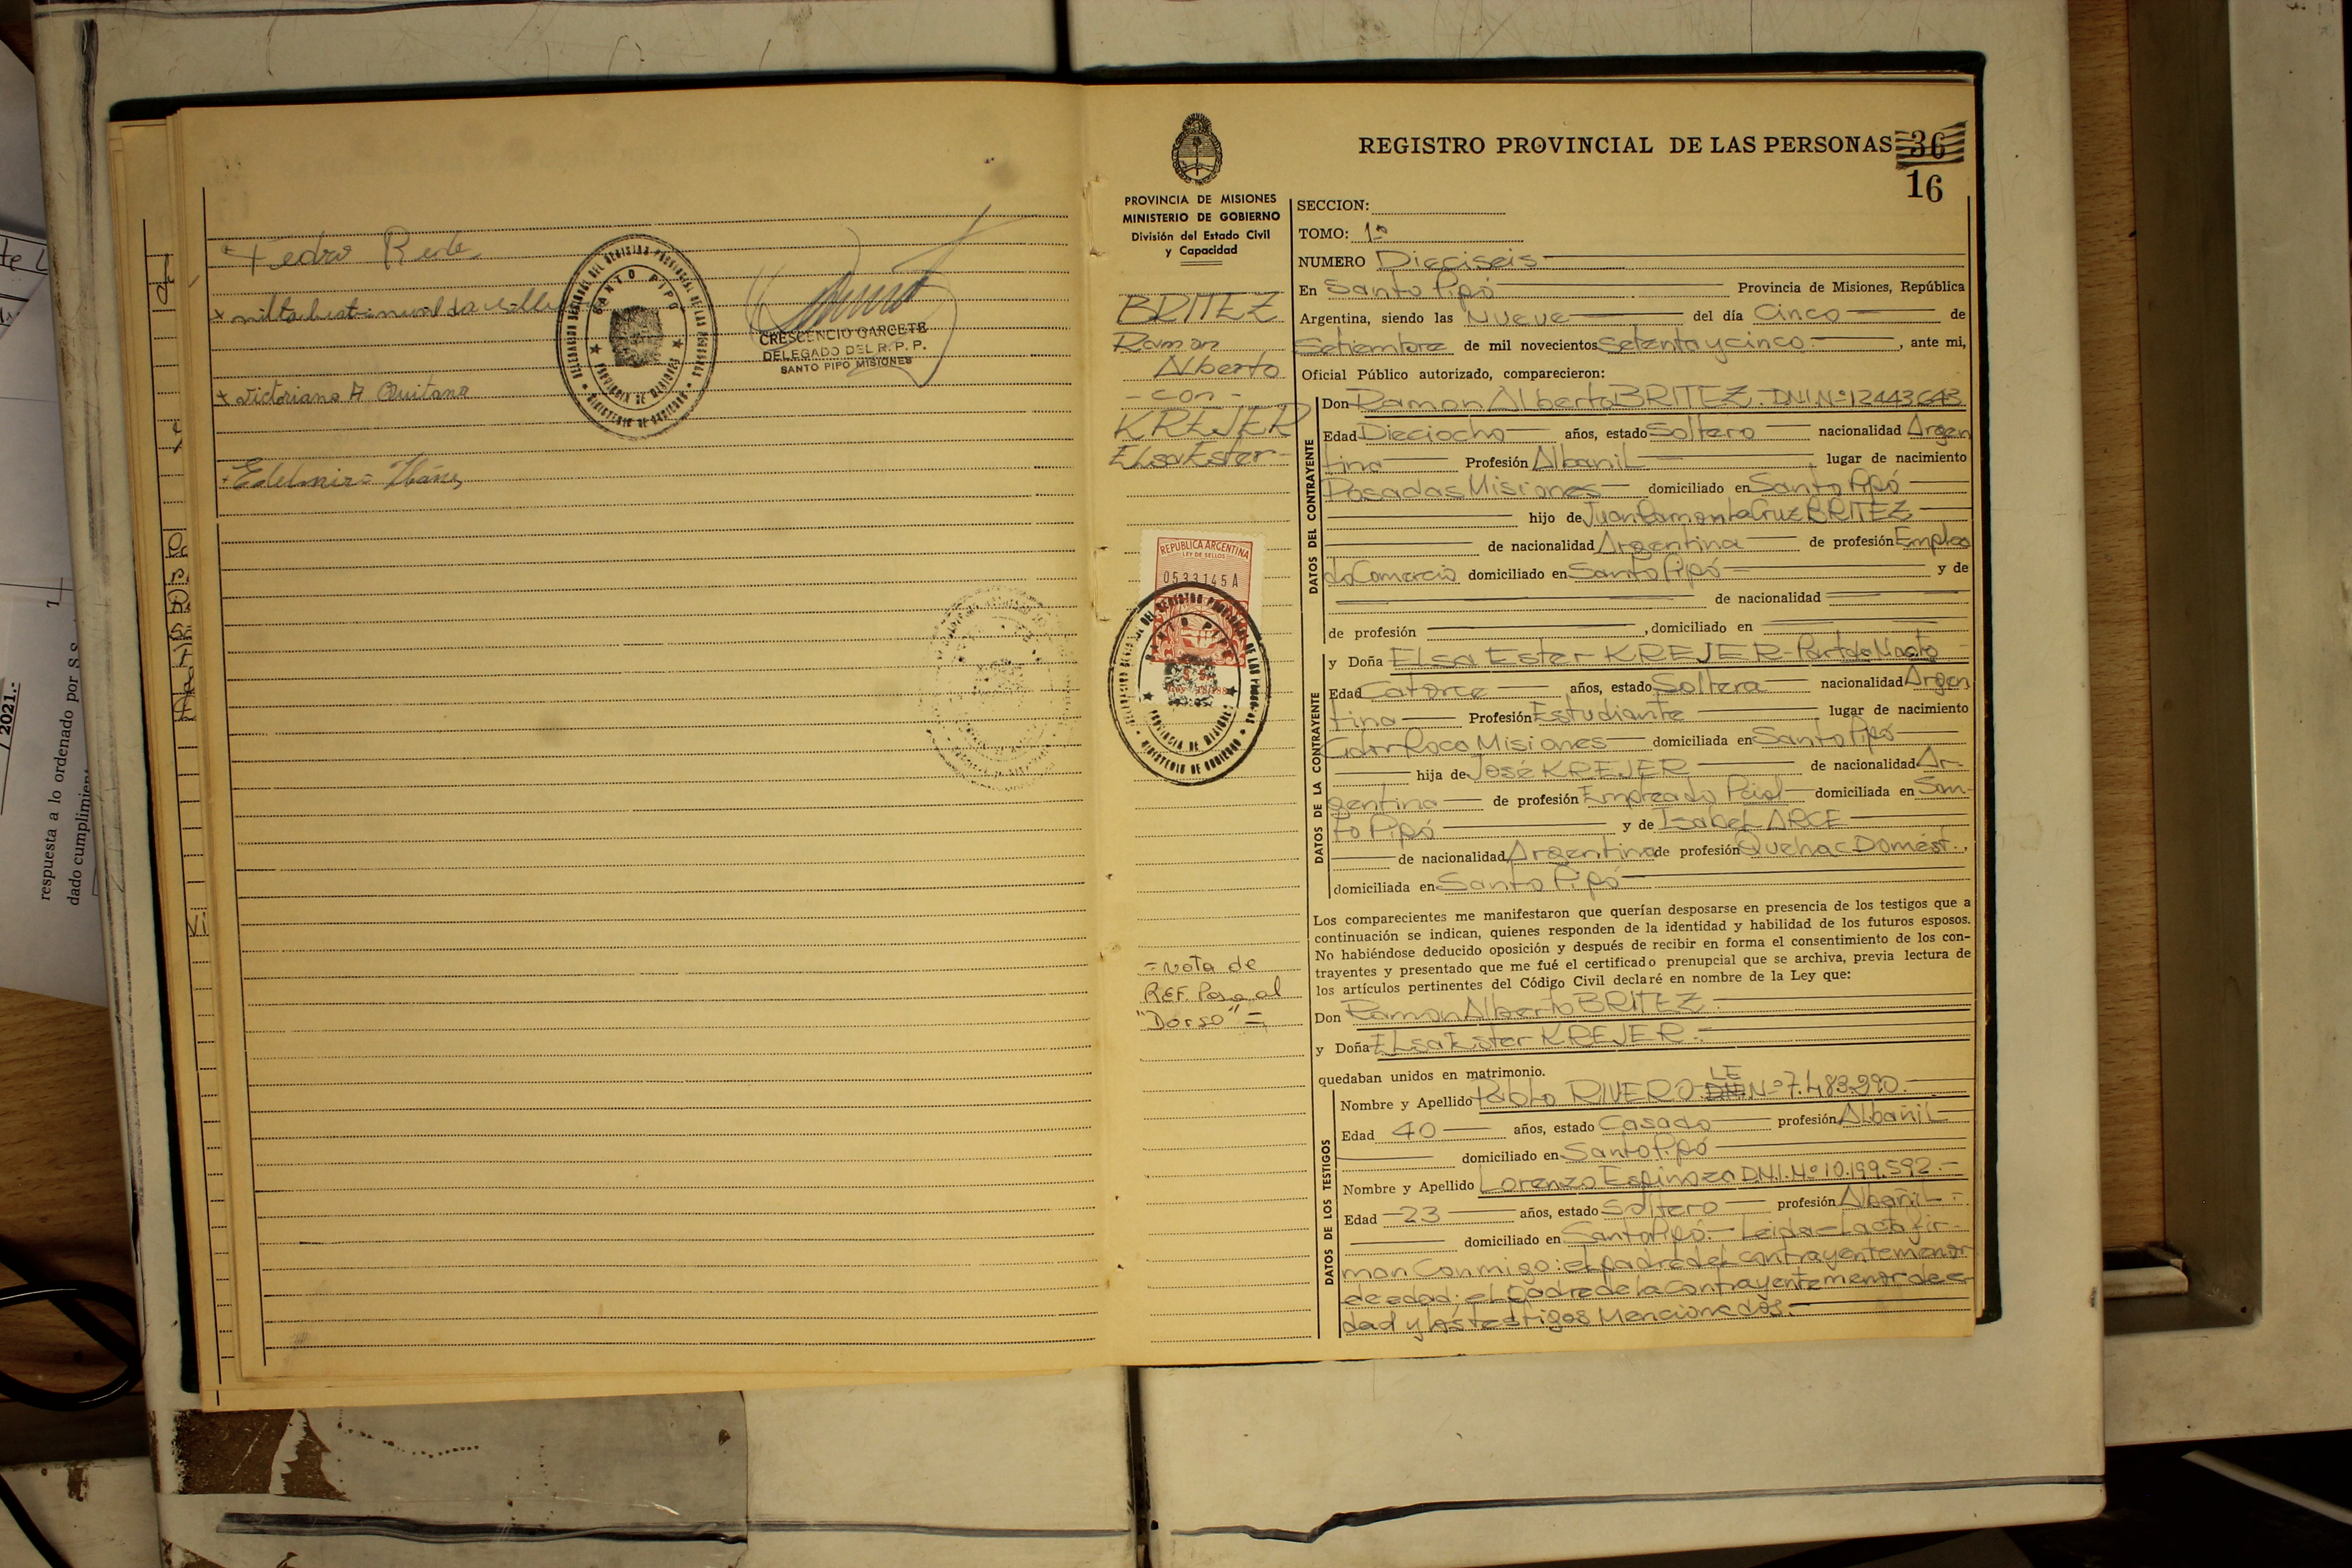 Pedro
Victoriano A Quitana
Edelmiro Ibáñez
SANTO PIPO
PROVINCIA DE MISIONES
MINISTERIO DE GOBIERNO
CRESCENCIO GARCETE
DELEGADO DEL R. P. P.
SANTO PIPO MISIONES
respuesta a lo ordenado por S.S.
dado cumplimien
/ 2021.-
PROVINCIA DE MISIONES
MINISTERIO DE GOBIERNO
División del Estado Civil
y Capacidad
BRITEZ
Ramon
Alberto
- con -
KREJER
Elsa Ester-
REPUBLICA ARGENTINA
LEY DE SELLOS
0533145 A
SANTO PIPO
PROVINCIA DE MISIONES
MINISTERIO DE GOBIERNO
= Nota de
REF. Pasa al
"Dorso" =
REGISTRO PROVINCIAL DE LAS PERSONAS 36
16
SECCION:
TOMO: 1º
NUMERO Dieciseis
En Santo Pipó Provincia de Misiones, República
Argentina, siendo las Nueve del día Cinco de
Setiembre de mil novecientos Setenta y cinco.- , ante mi,
Oficial Público autorizado, comparecieron:
DATOS DEL CONTRAYENTE
Don Ramon Alberto BRITEZ. DNI.Nº12443643
Edad Dieciocho años, estado Soltero nacionalidad Argen
tina Profesión Albanil lugar de nacimiento
Posadas Misiones domiciliado en Santo Pipó
hijo de Juan Ramon la Cruz BRITEZ
de nacionalidad Argentina de profesión Emplea
do Comercio domiciliado en Santo Pipó y de
de nacionalidad
de profesión , domiciliado en
DATOS DE LA CONTRAYENTE
y Doña Elsa Ester KREJER-
Edad Catorce años, estado Soltera nacionalidad Argen
tina Profesión Estudiante lugar de nacimiento
Misiones domiciliada en Santo Pipó
hija de José KREJER de nacionalidad Ar-
gentina de profesión Empleado domiciliada en San-
to Pipó y de Isabel ARCE
de nacionalidad Argentina de profesión Quehac Domést.,
domiciliada en Santo Pipó
Los comparecientes me manifestaron que querían desposarse en presencia de los testigos que a
continuación se indican, quienes responden de la identidad y habilidad de los futuros esposos.
No habiéndose deducido oposición y después de recibir en forma el consentimiento de los con-
trayentes y presentado que me fué el certificado prenupcial que se archiva, previa lectura de
los artículos pertinentes del Código Civil declaré en nombre de la Ley que:
Don Ramon Alberto BRITEZ.-
y Doña Elsa Ester KREJER.-
quedaban unidos en matrimonio.
DATOS DE LOS TESTIGOS
Nombre y Apellido Pablo RIVERO LE Nº7.483.290.-
Edad 40 años, estado Casado profesión Albañil
domiciliado en Santo Pipó
Nombre y Apellido Lorenzo Espinoza D.N.I.Nº10.199.592.-
Edad 23 años, estado Soltero profesión Albañil-
domiciliado en Santo Pipó.- Leida-Lacta fir-
man Conmigo: el padre del contrayente menor
de edad; el Padre de la contrayente menor de e-
dad y los testigos Mencionados.-